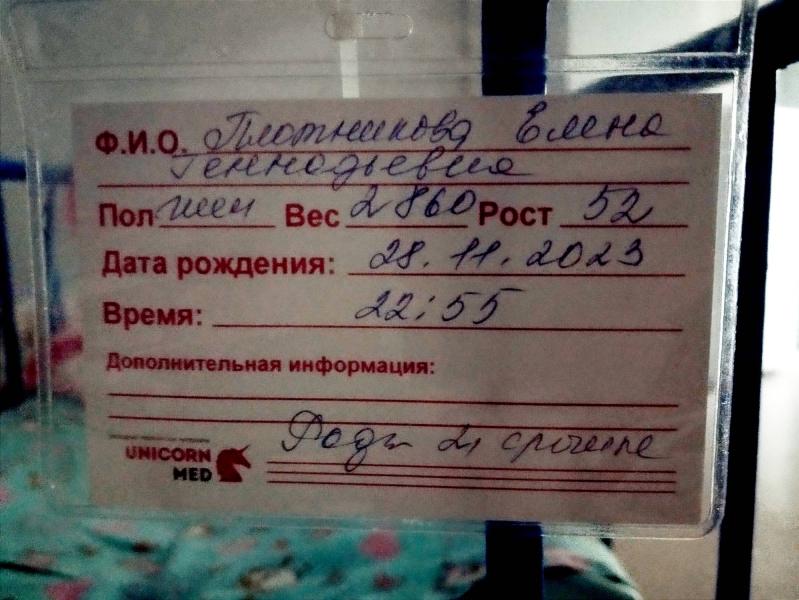 Ф.И.О. Плотникова Елена
Геннадьевна
Пол жен Вес 2860 Рост 52
Дата рождения: 28.11.2023
Время: 22:55
Дополнительная информация:
Роды 2, срочные
UNICORN
MED